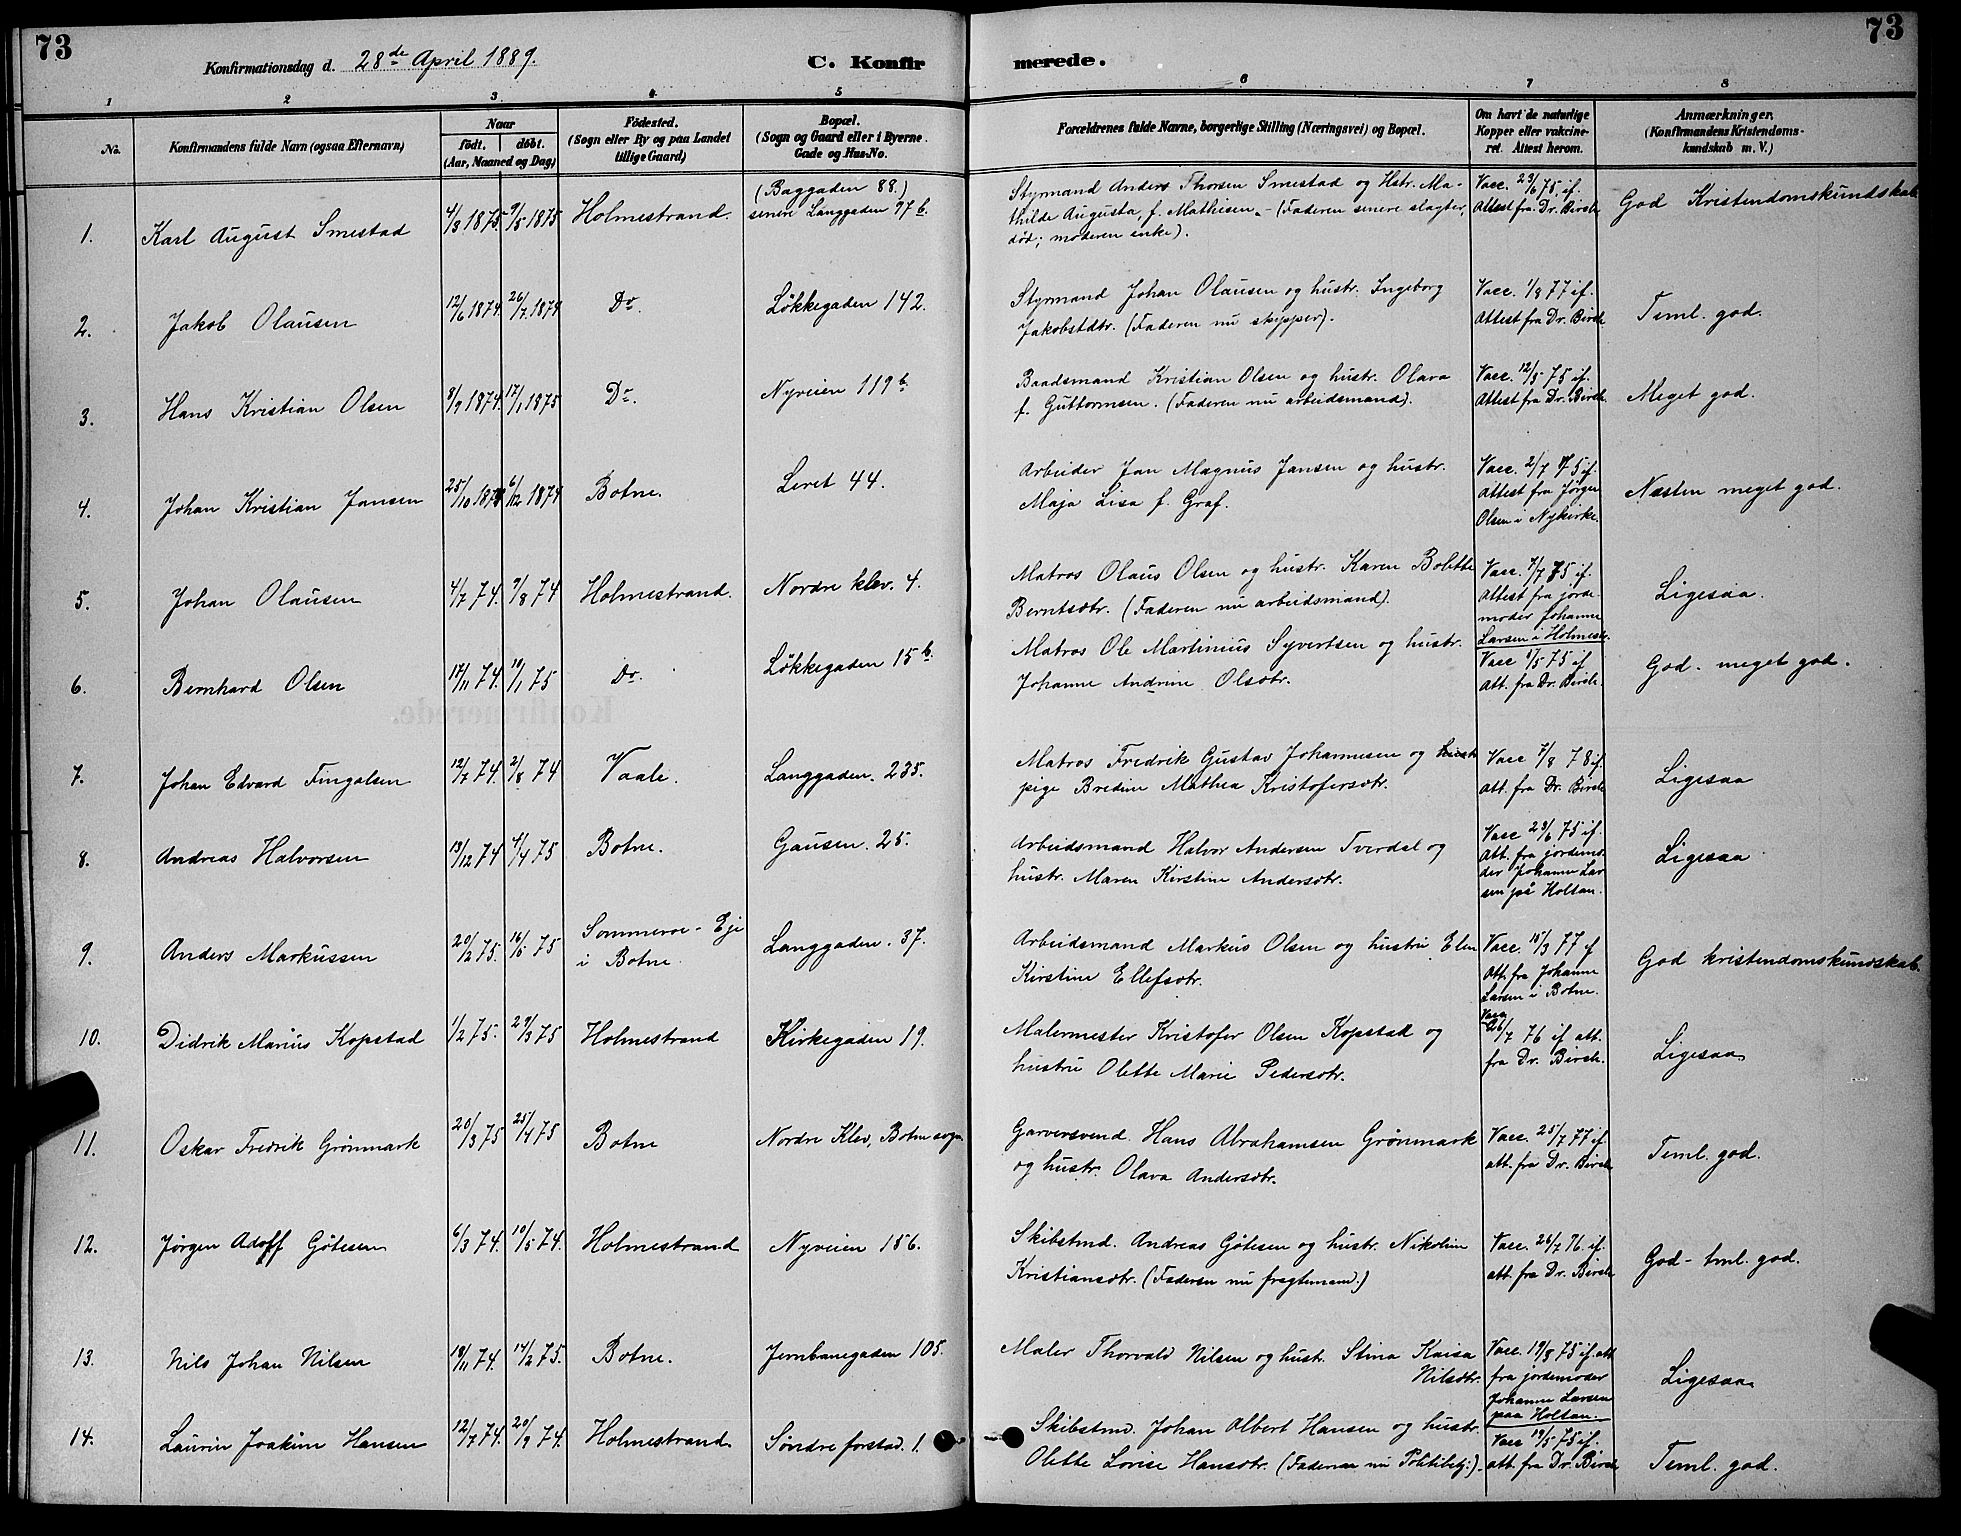 73
73
Konfirmationsdag d. 28de April 1889.
C. Konfirmerede.
1 2 3 4 5 6 7 8
No.
Konfirmandens fulde Navn (ogsaa Efternavn)
Naar
födt. döbt.
(Aar, Maaned og Dag)
Födested.
(Sogn eller By og paa Landet
tillige Gaard)
Bopæl.
(Sogn og Gaard eller i Byerne
Gade og Hus-No.
Forældrenes fulde Navne, borgerlige Stilling (Næringsvei) og Bopæl.
Om havt de naturlige
Kopper eller vakcine-
ret. Attest herom.
Anmærkninger.
(Konfirmandens Kristendoms-
kundskab m. V.)
1. Karl August Smestad
4/3 1875. 9/5 1875
Holmestrand.
(Baggaden 88.)
senere Langgaden 97 b.
Styrmand Anders Thorsen Smestad og Hstr. Ma-
thilde Augusta, f. Mathisen. - (Faderen senere slagter,
död; moderen enke).
Vacc. 23/6 75, if.
Attest fra Dr. Birch
God Kristendomskundskab
2. Jakob Olausen
12/6 1874. 26/7 1874
Do.
Løkkegaden 142.
Styrmand Johan Olausen og hustr. Ingeborg
Jakobsdtr. (Faderen nu skipper).
Vacc. 1/8 77 if.
Attest fra Dr. Birch
Teml. god.
3. Hans Kristian Olsen
8/9 1874. 17/1 1875
Do.
Nyveien 119 b.
Baadsmand Kristian Olsen og hustr. Olava
f. Guttormsen. (Faderen nu arbeidsmand).
Vacc. 12/5 75 if.
Attest fra Dr. Birch
Meget god.
4. Johan Kristian Jansen
25/10 1874 6/12 1874
Botne.
Leret 44.
Arbeider Jan Magnus Jansen og hustr.
Maja Lisa f. Graf.
Vacc. 2/7 75 if.
Attest fra Jørgen
Olsen i Nykirke.
Næsten meget god.
5. Johan Olausen
4/7 74. 9/8 74
Holmestrand.
Nordre klev. 4.
Matros Olaus Olsen og hustr. Karen Bolette
Berntsdtr. (Faderen nu arbeidsmand).
Vacc. 7/7 75 if.
Attest fra jorde-
moder Johanne
Larsen i Holmestr.
Ligesaa.
6. Bernhard Olsen
17/11 74. 19/1 75
Do.
Løkkegaden 15 b.
Matros Ole Martinius Syvertsen og hustr.
Johanne Andrine Olsdtr.
Vacc 1/5 75 if
Att. fra Dr. Birch.
God - meget god.
7. Johan Edvard Fingalsen
12/7 74. 2/8 74
Vaale.
Langgaden. 235.
Matros Fredrik Gustav Johannesen og
pige Bredine Mathea Kristofersdtr.
Vacc 7/8 78 if.
att. fra Dr. Birch
Ligesaa
8. Andreas Halvorsen
19/12 74 4/4 75
Botne.
Gausen. 25.
Arbeidsmand Halvor Andersen Tverdal og
hustr. Maren Kirstine Andersdtr.
Vacc 23/6 75 if.
Att. fra jordemo-
der Johanne Lar
sen på Holtan.
Ligesaa
9. Anders Markussen
20/2 75. 16/5 75
Sommeroe - Eje
i Botne.
Langgaden. 37.
Arbeidsmand Markus Olsen og hustru Elen
Kirstine Ellefsdtr.
Vacc. 15/3 77 if
Att. fra Johanne
Larsen i Botne.
God kristendomskundskab.
10. Didrik Marius Kopstad
1/2 75. 29/3 75
Holmestrand
Kirkegaden 19.
Malermester Kristofer Olsen Kopstad og
hustru Olette Marie Pedersdtr.
Vacc
26/7 76 if att.
fra Dr. Birch.
Ligesaa
11. Oskar Fredrik Grönmark
20/3 75 25/4 75
Botne
Nordre Klev, Botne sogn
Garversvend. Hans Abrahamsen Grönmark
og hustr. Olava Andersdtr.
Vacc. 25/7 77 if
att. fra Dr. Birch
Teml. god.
12. Jørgen Adolf Götesen
6/3 74. 10/5 74.
Holmestrand
Nyveien 156.
Skibstmd. Andreas Götesen og hustr. Nikoline
Kristiansdtr. (Faderen nu fragtemand.)
Vacc. 26/7 76. if.
att. fra Dr. Birch
God - tml. god.
13. Nils Johan Nilsen
19/11 74. 14/2 75.
Botne.
Jernbanegaden 105.
Maler Thorvald Nilsen og hustr. Stina Kaisa
Nilsdtr.
Vacc. 19/8 75 if. att
fra jordemoder
Johanne Larsen
paa Holtan.
Ligesaa
14. Laurin Joakim Hansen
12/7 74. 20/9 74.
Holmestrand.
Søndre forstad. 1.
Skibstmd. Johan Albert Hansen og hustr.
Olette Lovise Hansdtr. (Faderen nu Politibetj.).
Vacc 19/5 75 if.
att. fra Dr. Birch
Teml. god.